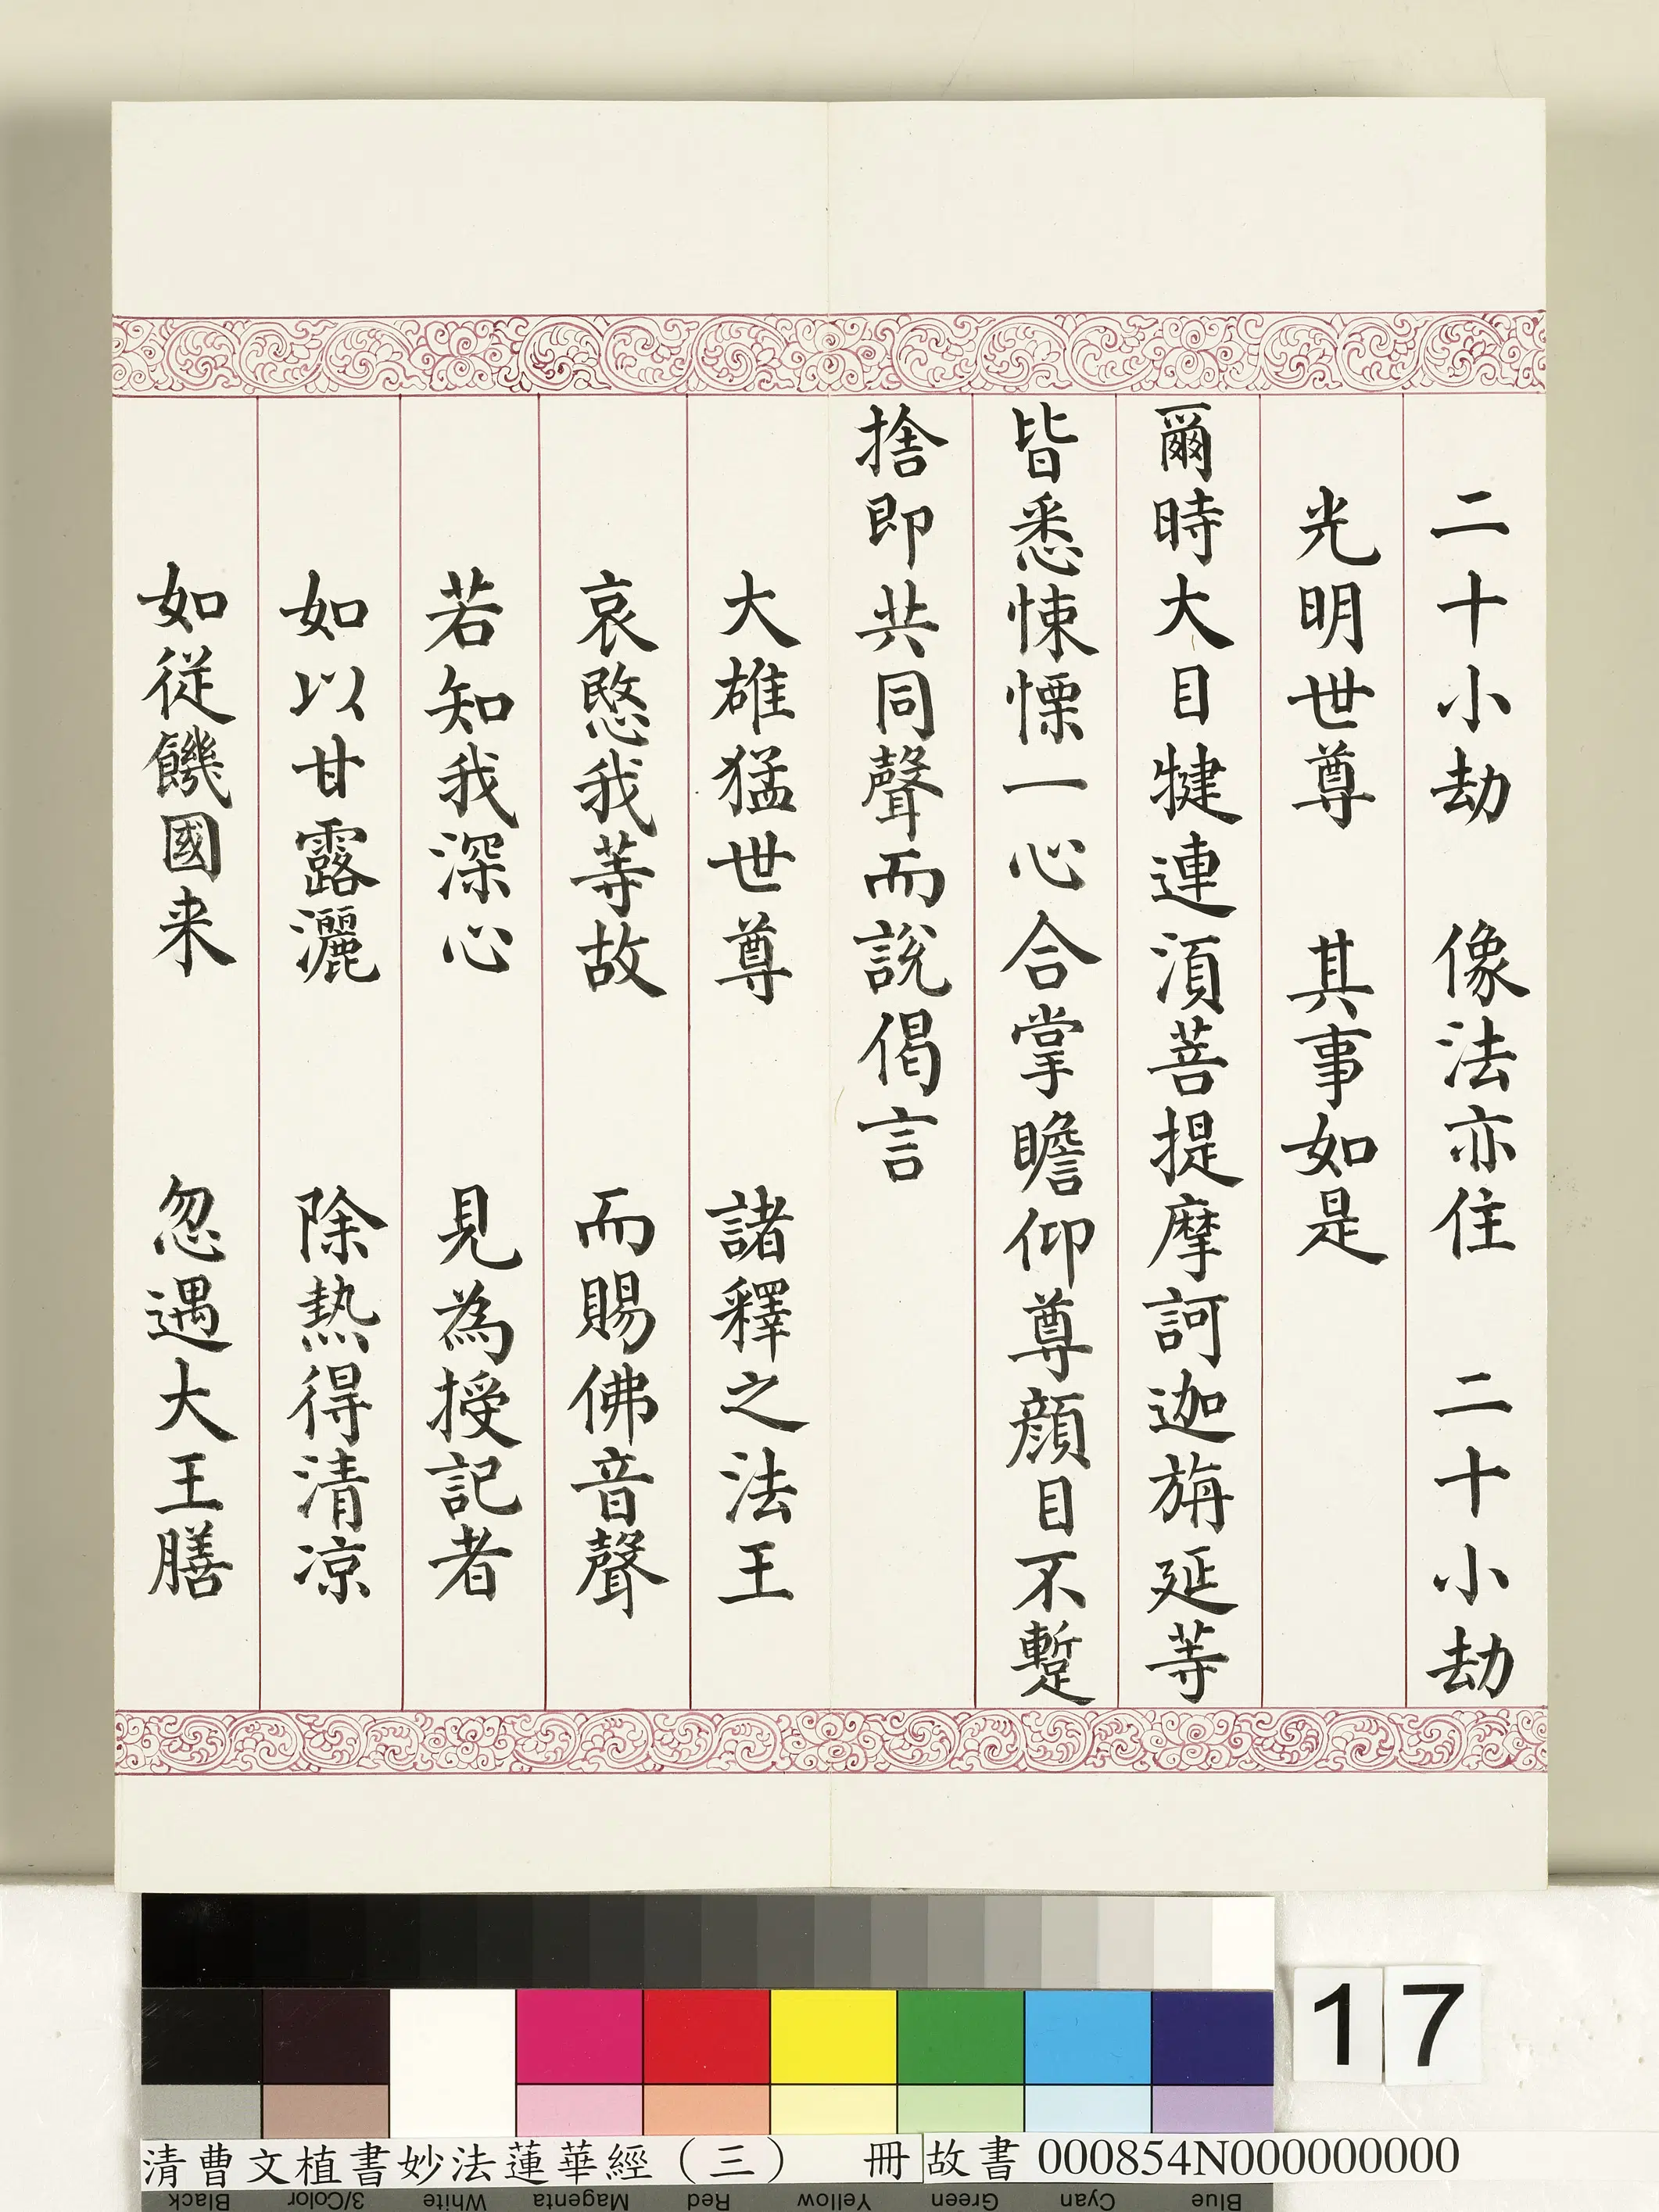 二十小劫　像法亦住　二十小劫
光明世尊　其事如是
爾時大目犍連須菩提摩訶迦旃延等
皆悉悚慄一心合掌瞻仰尊顏目不蹔
捨即共同聲而說偈言
大雄猛世尊　諸釋之法王
哀愍我等故　而賜佛音聲
若知我深心　見為授記者
如以甘露灑　除熱得清涼
如從饑國来　忽遇大王膳
17
清曹文植書妙法蓮華經（三）　冊
故書 000854N000000000
Black 3/Color White Magenta Red Yellow Green Cyan Blue